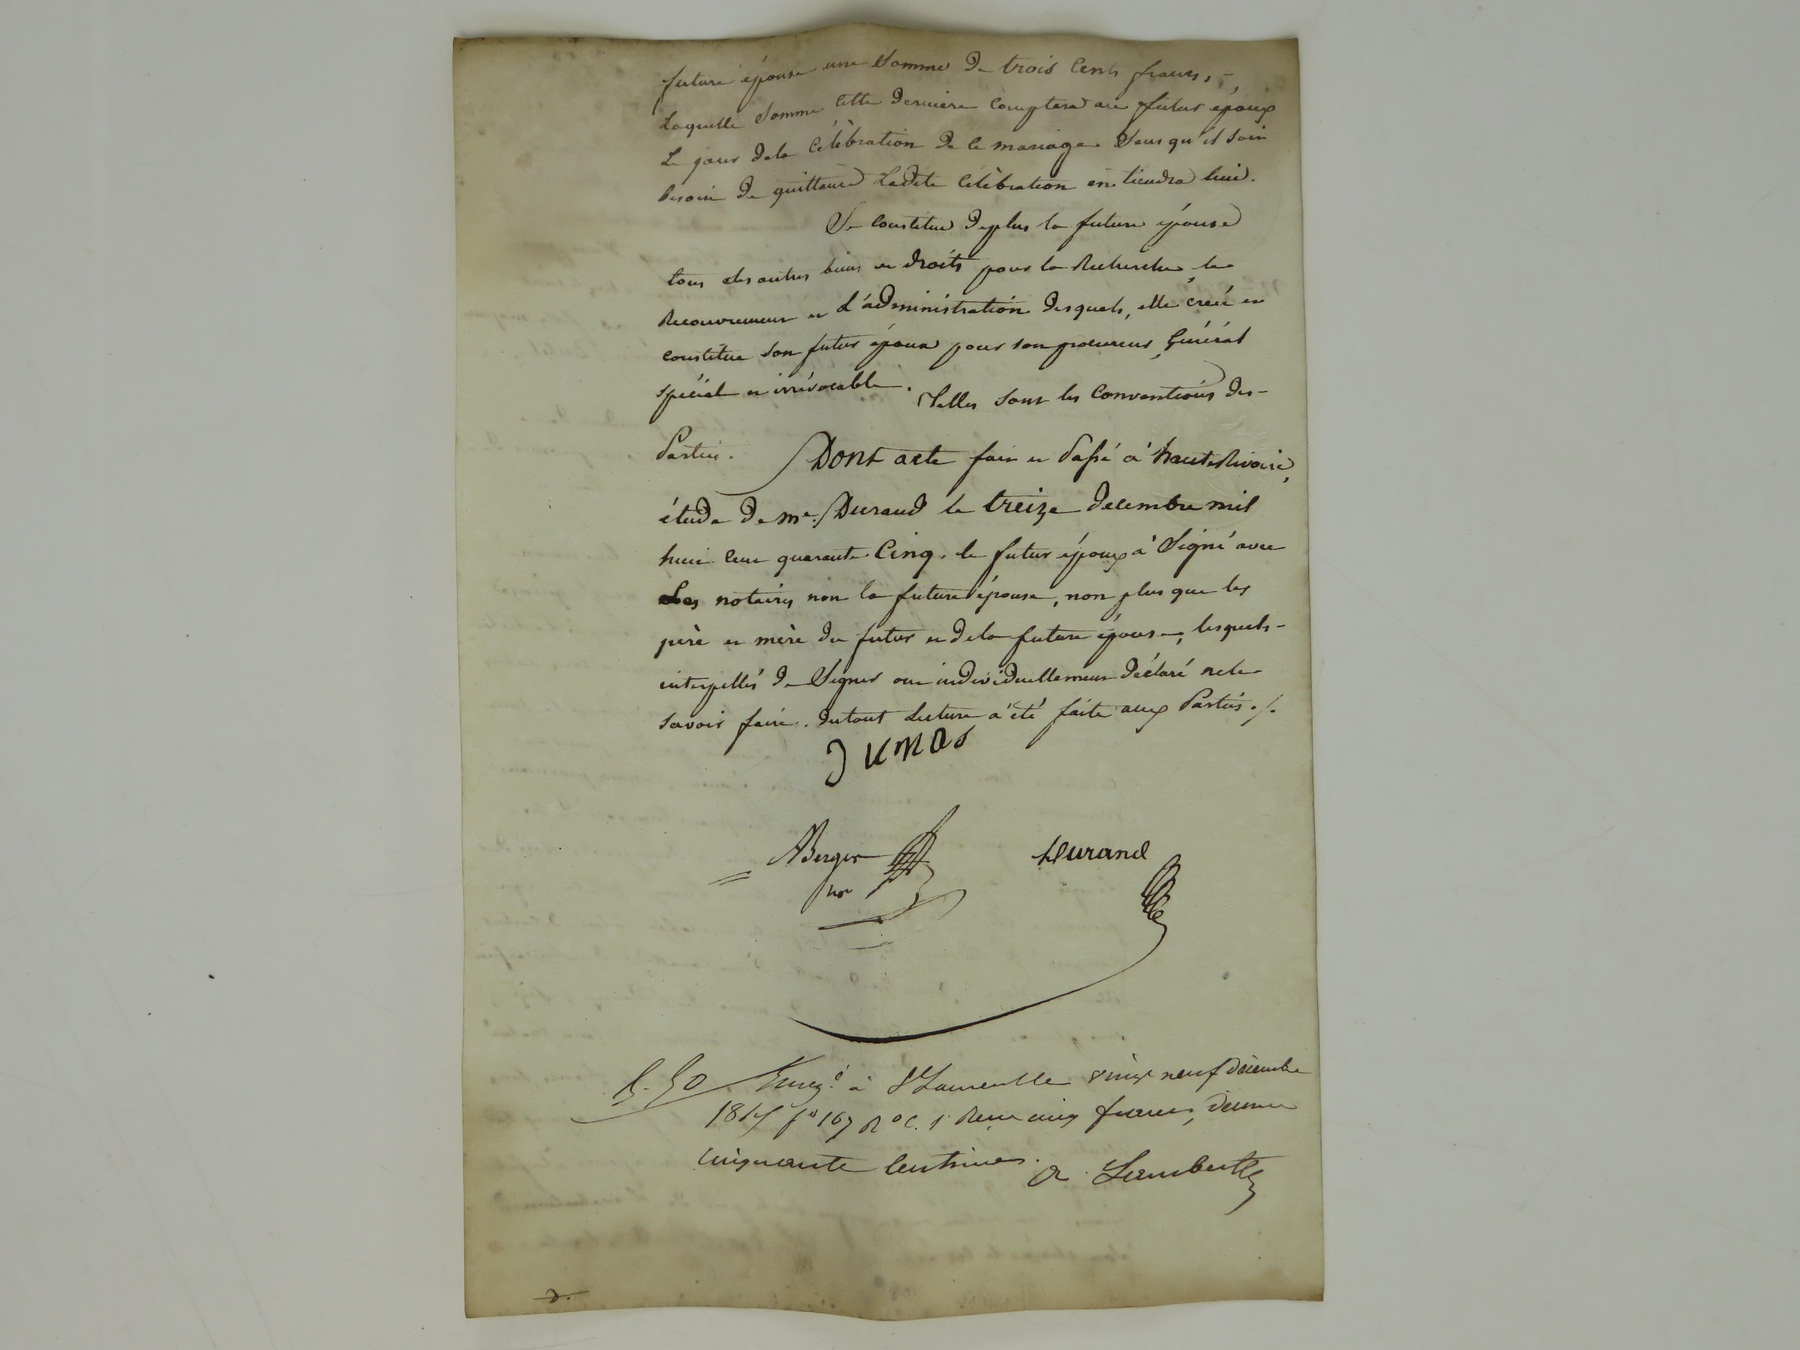 future épouse une somme de trois cents francs, -
Laquelle somme cette dernière comptera au futur époux
le jour dela célèbration de ce mariage Sans qu'il soit
besoin de quittance Ladite célèbration en tiendra lieu.
Se constitue deplus la future épouse
tous ses autres biens et droits pour la Recherche, le
Recouvrement et L'administration desquels, elle créé et
constitue son futur époux pour son procureur Général
spécial et irrévocable. Telles sont les Conventions des-
Parties. Dont acte fait et Passé à haute Rivoire,
étude de me. Durand le treize decembre mil
huit cent quarante Cinq. le futur époux à Signé avec
Les notaires non la future épouse, non plus que les
père et mère du futur et dela future épouse, lesquels-
interpellés de Signer ont individuellement déclaré nele
savoir faire. Dutout Lecture a été faite aux Parties ./.
Dumas
ABerger
nre
Durand
5.50 Enregé à St Laurent le vingt neuf Décembre
1845 fo 167 Ro C. 1 Reçu cinq francs, décime
cinquante centimes. Lambert